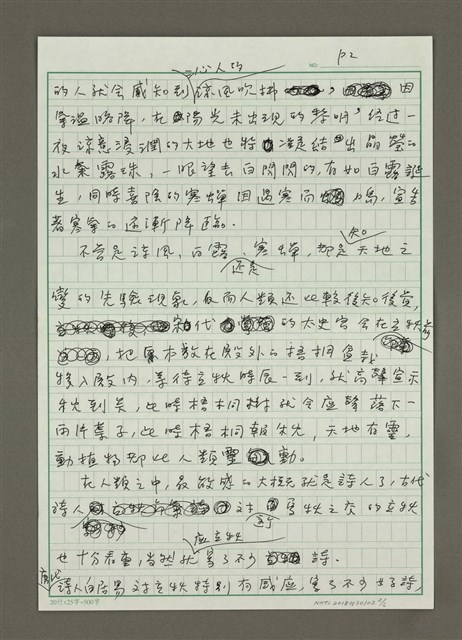 P2
的人就会感知到沁人的涼風吹拂,因
氣溫略降,在陽光未出現的黎明,經過一
夜涼意浸潤的大地也特准結出晶瑩的
水氣露珠,一眼望去白閃閃的,有如白露誕
生,同時喜陰的寒蟬因遇寒而鳴,宣告
著寒氣的逐漸降臨。
不管是涼風、白露、還是寒蟬,都是知天地之
變的先驗現象,反而人類还比較後知後覺,
宋代的太史官会在立秋
,把原本栽在殿外的梧桐盆栽
移入殿內,等待立秋時辰一到,就高聲宣示
秋到矣,此時梧桐樹就会應聲落下一
兩片葉子,此時梧桐報秋,天地有靈,
動植物都比人類靈動。
在人類之中,最敏感的大概就是詩人了,古代
詩人对夏秋之交的立秋
也十分看重,当然就寫了不少應立秋詩。
唐代
詩人白居易对立秋特別有感应,寫了不少好詩,
20行×25字=500字